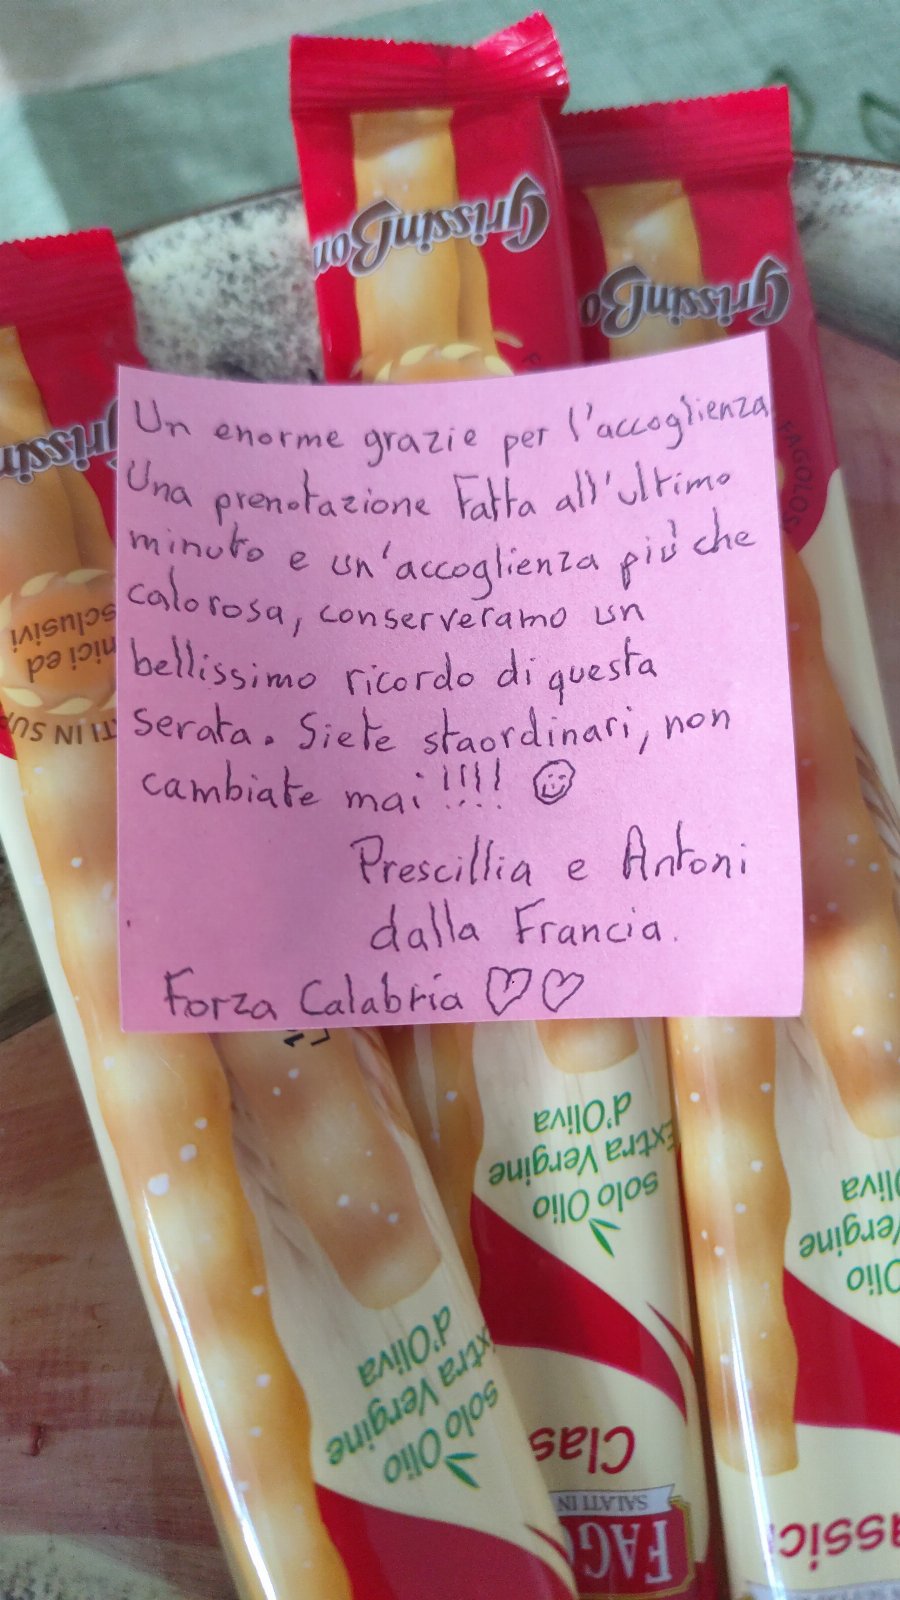 GrissinBon
GrissinBo
Grissin
FAGOLOS
Un enorme grazie per l'accoglienza
Una prenotazione Fatta all'ultimo
minuto e un'accoglienza più che
calorosa, conserveramo un
bellissimo ricordo di questa
serata. Siete staordinari, non
cambiate mai !!!!
Prescillia e Antoni
dalla Francia.
Forza Calabria
nici ed
sclusivi
TI IN SU
solo Olio
Extra Vergine
d'Oliva
solo Olio
xtra Vergine
d'Oliva
Olio
Vergine
Oliva
FAG
SALATI IN
Clas
assic